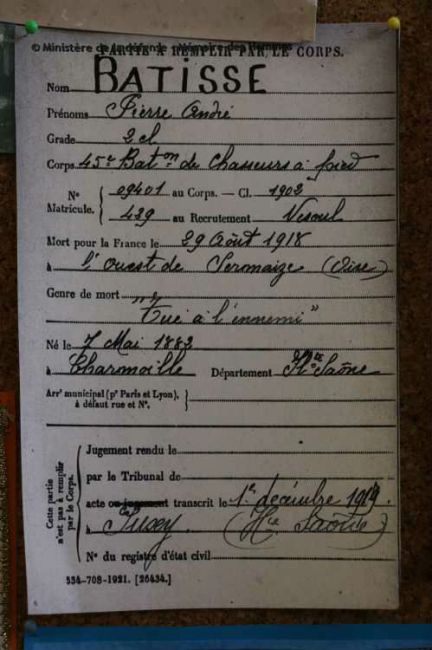 © Ministère de la défense - Mémoire des Hommes
PARTIE À REMPLIR PAR LE CORPS.
Nom BATISSE
Prénoms Pierre André
Grade 2 cl
Corps 45e Bat.on de Chasseurs à pied
N° Matricule. { 09401 au Corps. — Cl. 1902
439 au Recrutement Vesoul
Mort pour la France le 29 Août 1918
à l'ouest de Sermaize (Oise)
Genre de mort
"Tué à l'ennemi"
Né le 7 Mai 1882
à Charmoille Département Hte Saône
Arrt municipal (pr Paris et Lyon),
à défaut rue et N°.
Cette partie n'est pas à remplir par le Corps.
Jugement rendu le
par le Tribunal de
acte ou jugement transcrit le 1er décembre 1919.
à Pusey (Hte Saône)
N° du registre d'état civil
534-708-1921. [26434.]